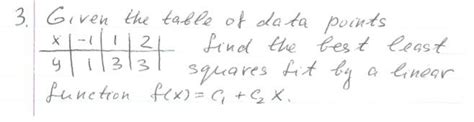 3. Given the table of data points
x | -1 | 1 | 2 | find the best least
y | 1 | 3 | 3 | squares fit by a linear
function f(x) = C₁ + C₂ x.